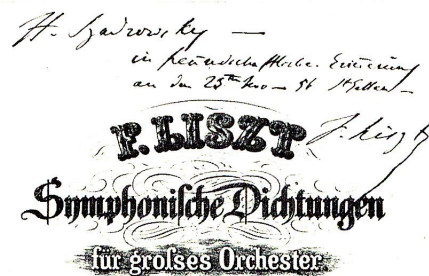 H. Szadrowsky —
in freundschaftlicher Erinerung
an den 23ten Nov – 56 St Gallen –
F. Liszt
F. LISZT
Symphonische Dichtungen
für großes Orchester